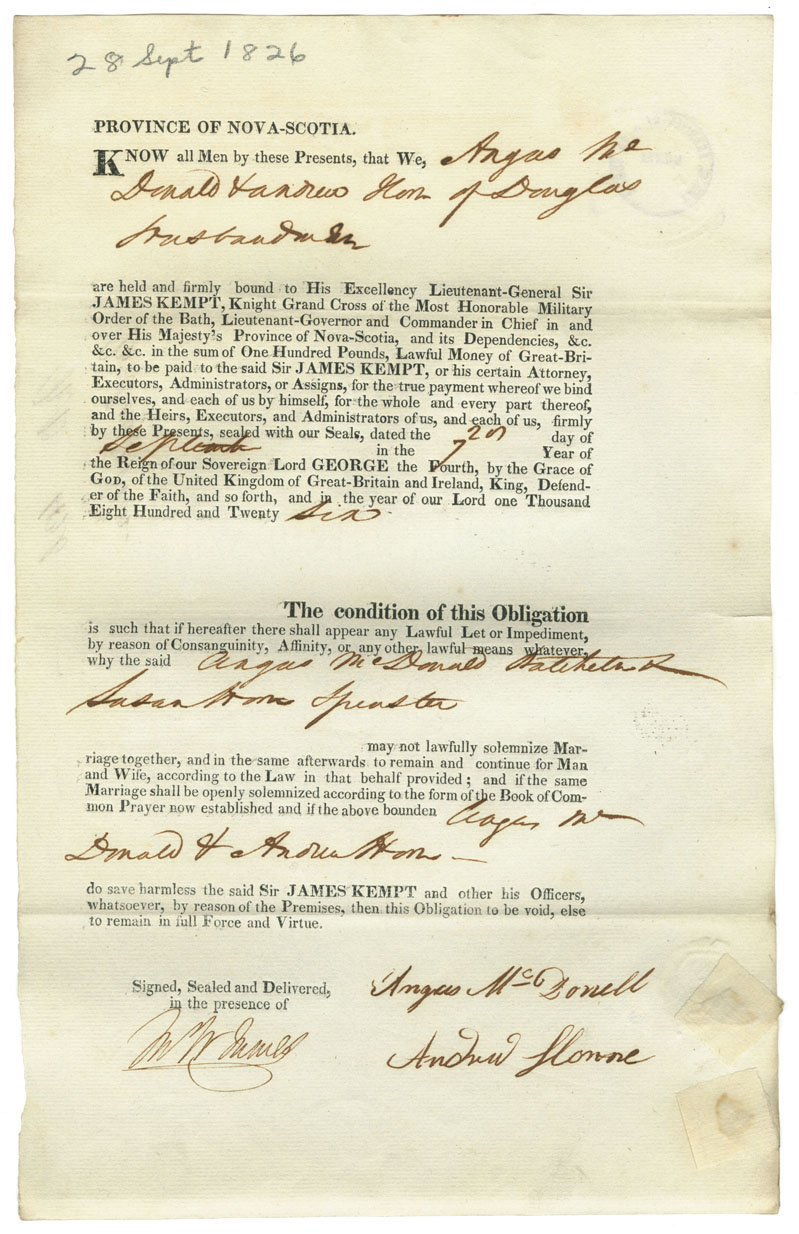 28 Sept 1826
PROVINCE OF NOVA-SCOTIA.
KNOW all Men by these Presents, that We, Angus Mc
Donald & Andrew Horn of Douglas
Husbandmen
are held and firmly bound to His Excellency Lieutenant-General Sir
JAMES KEMPT, Knight Grand Cross of the Most Honorable Military
Order of the Bath, Lieutenant-Governor and Commander in Chief in and
over His Majesty's Province of Nova-Scotia, and its Dependencies, &c.
&c. &c. in the sum of One Hundred Pounds, Lawful Money of Great-Bri-
tain, to be paid to the said Sir JAMES KEMPT, or his certain Attorney,
Executors, Administrators, or Assigns, for the true payment whereof we bind
ourselves, and each of us by himself, for the whole and every part thereof,
and the Heirs, Executors, and Administrators of us, and each of us, firmly
by these Presents, sealed with our Seals, dated the day of
in the 7 Year of
the Reign of our Sovereign Lord GEORGE the Fourth, by the Grace of
GOD, of the United Kingdom of Great-Britain and Ireland, King, Defend-
er of the Faith, and so forth, and in the year of our Lord one Thousand
Eight Hundred and Twenty Six
The condition of this Obligation
is such that if hereafter there shall appear any Lawful Let or Impediment,
by reason of Consanguinity, Affinity, or any other lawful means whatever,
why the said Angus McDonald &
Susan Horn Spinster
may not lawfully solemnize Mar-
riage together, and in the same afterwards to remain and continue for Man
and Wife, according to the Law in that behalf provided; and if the same
Marriage shall be openly solemnized according to the form of the Book of Com-
mon Prayer now established and if the above bounden Angus Mc
Donald & Andrew Horn
do save harmless the said Sir JAMES KEMPT and other his Officers,
whatsoever, by reason of the Premises, then this Obligation to be void, else
to remain in full Force and Virtue.
Signed, Sealed and Delivered,
in the presence of
Angus McDonell
Andrew Horne